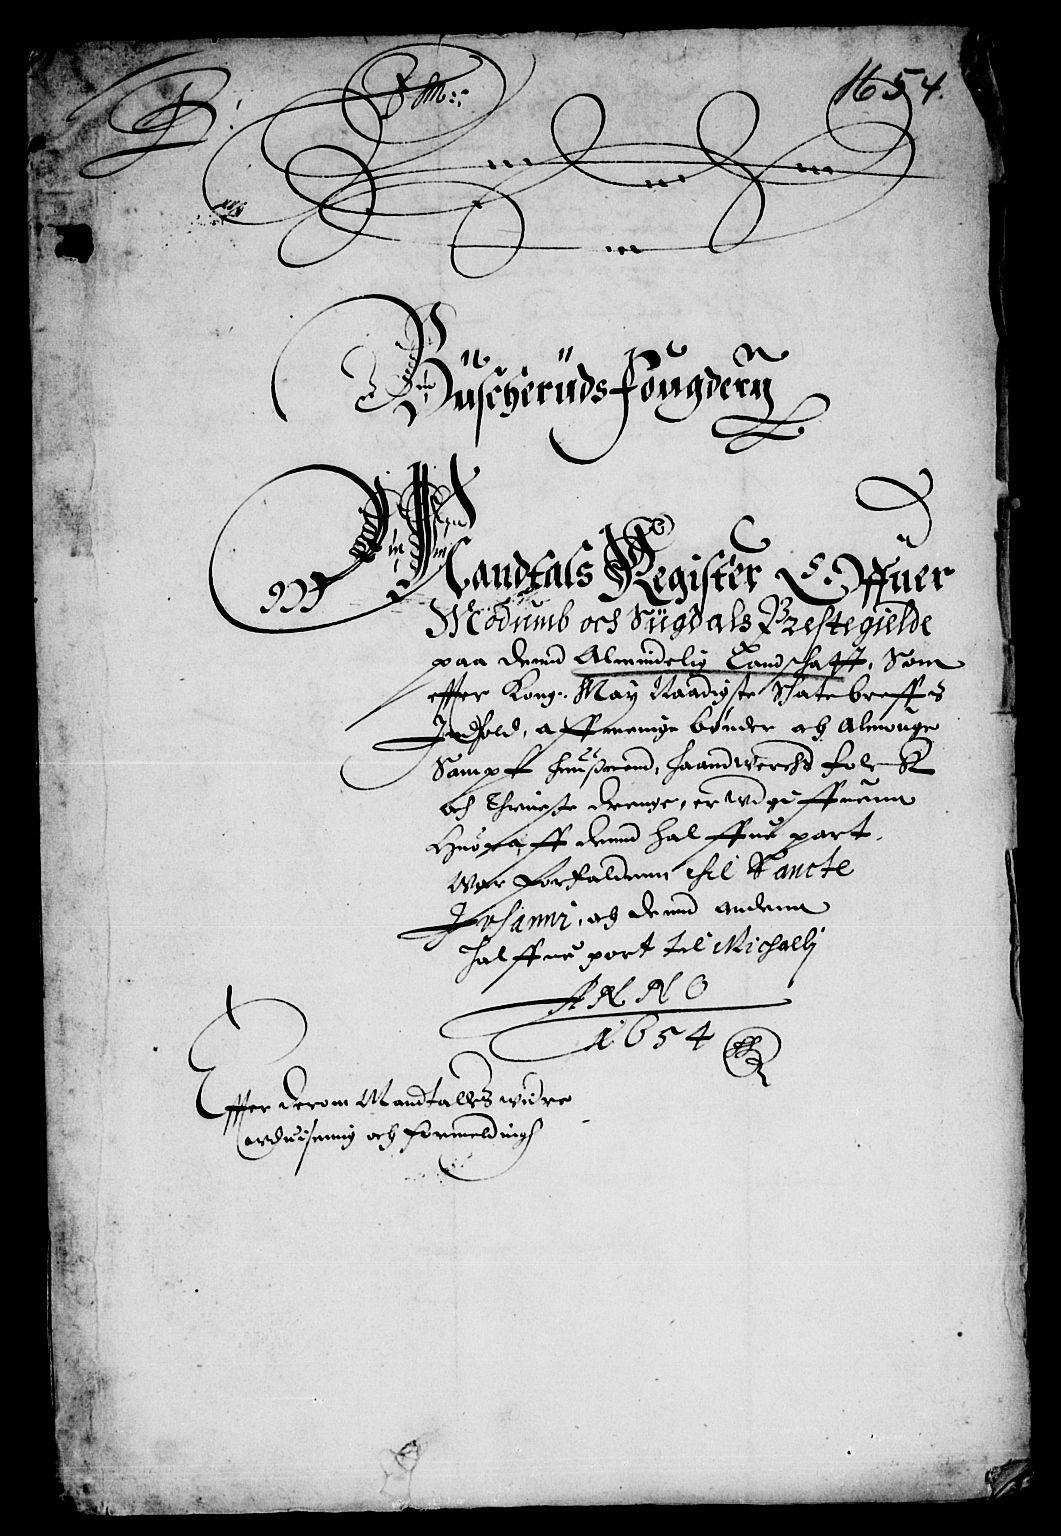 1654.
Buscheruds Fougdery
Mandtals Register Offuer
Modumb och Sugdals Prestegielde
paa dend Almindelig Landschatt, Som
effter Kong: May Naadigste Skatebreffs
Indhold, aff menige bønder och Almouge
Sampt huusmend, haandwerchs folck
och Thieneste drenge, er
Huoraff dend halffue part
War forfaldenn thil Sancte
Johanni, och dend andenn
halffue part til Michaelj
ANNO
1654
Effter derom Mandtalles widre
wduisning och formelding